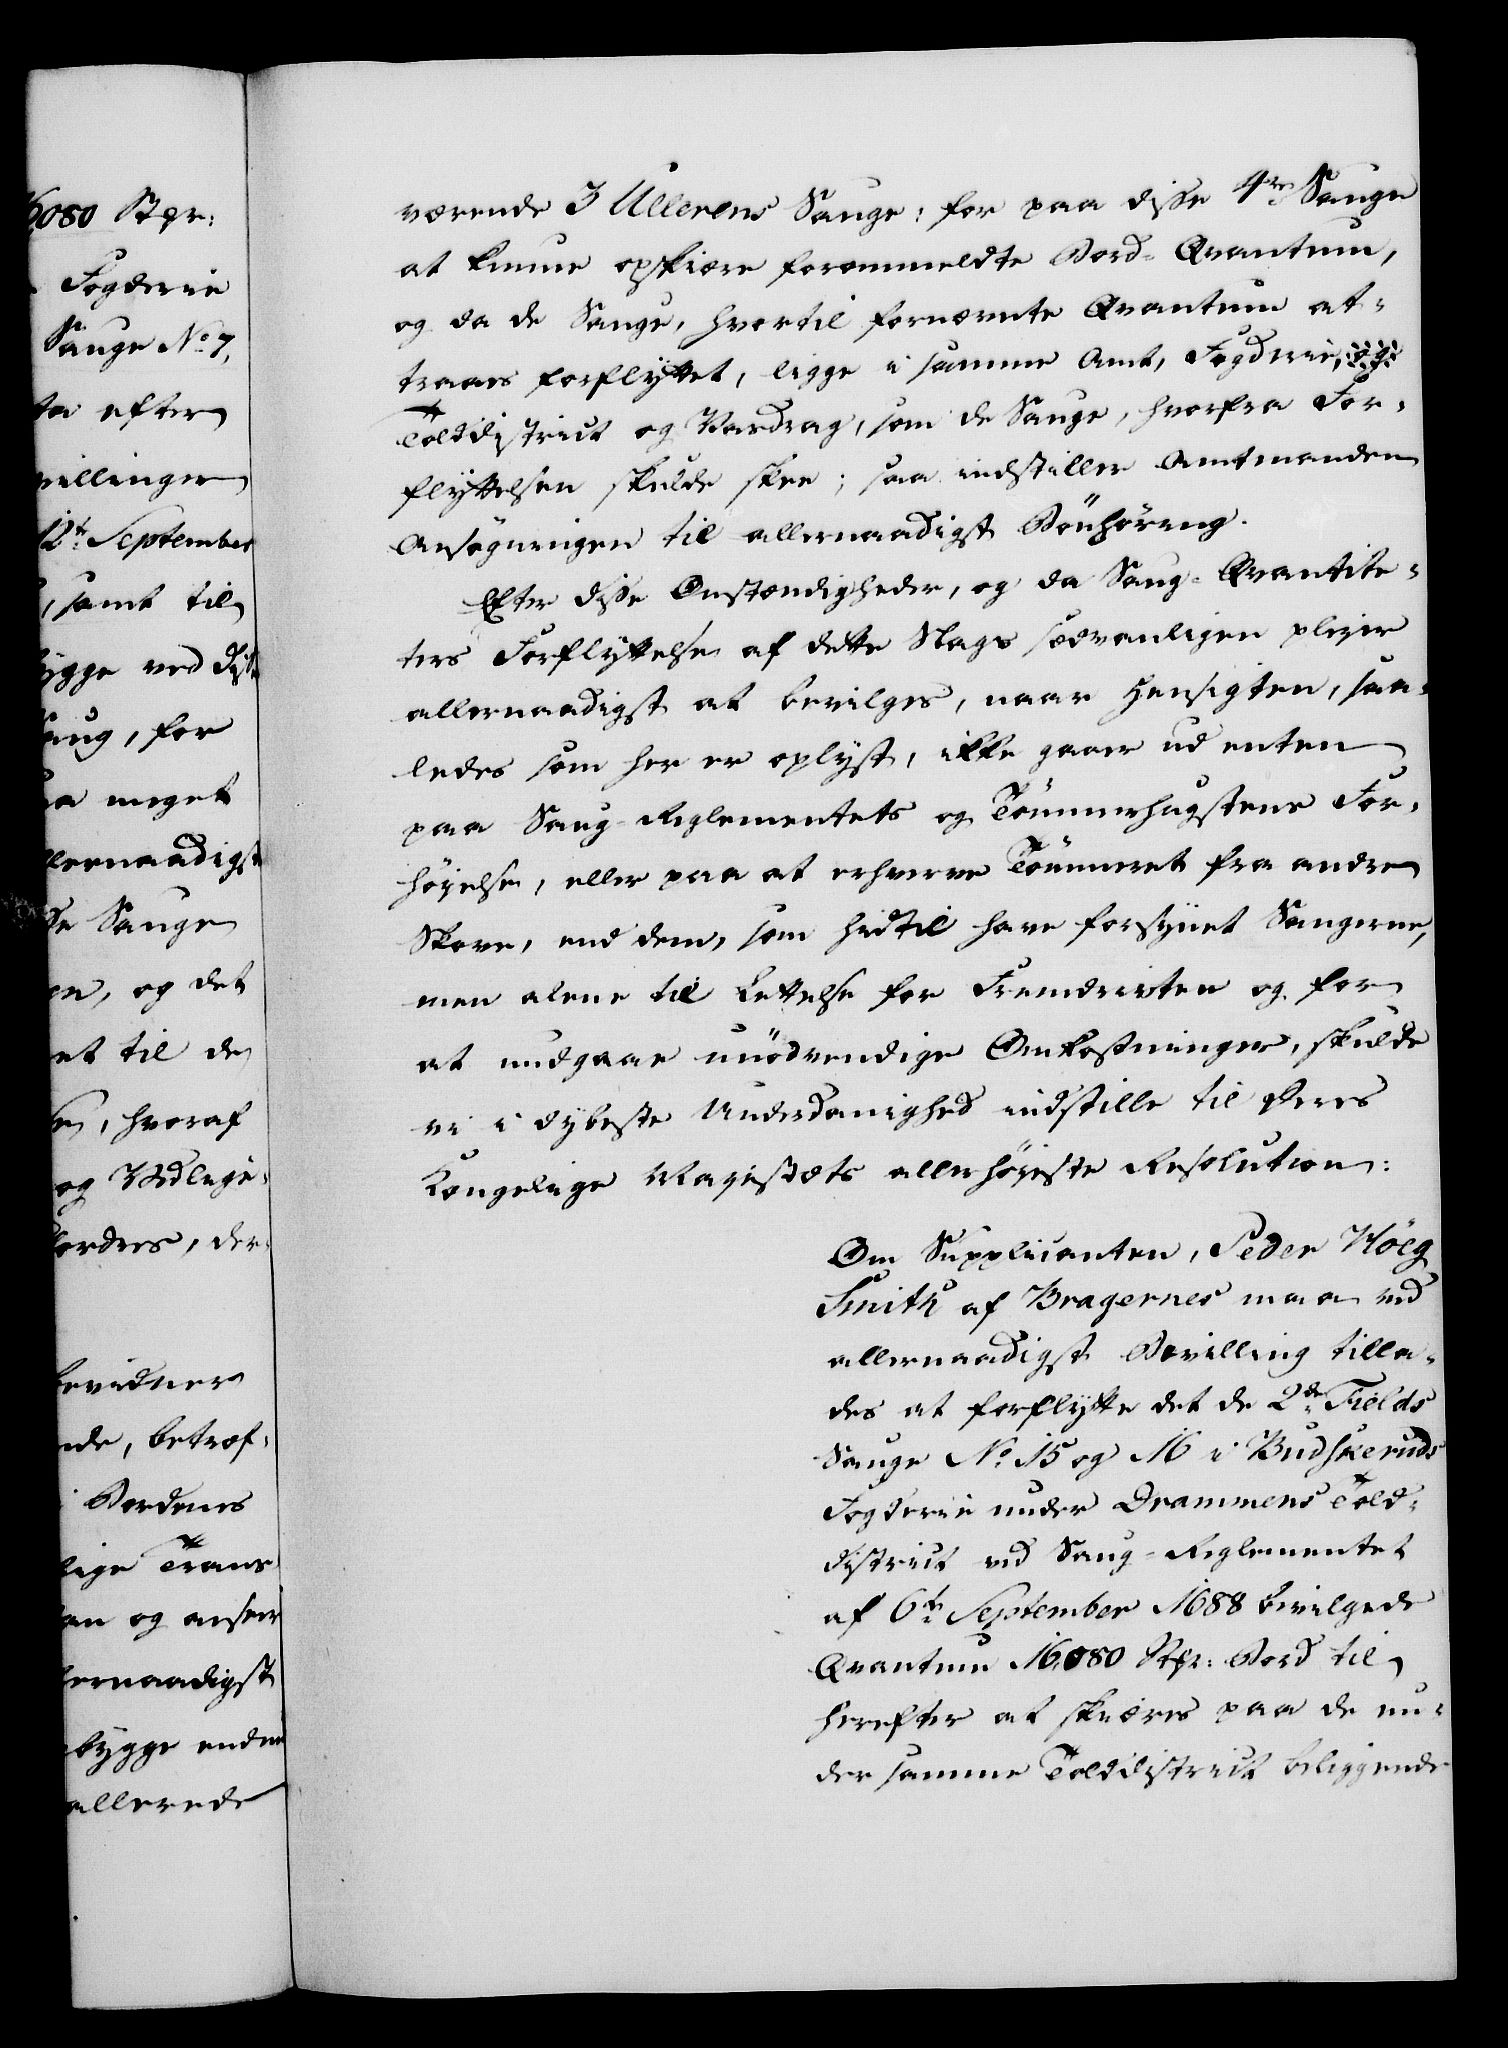 6080 Stkr:
Fogderie
Sauge No 7,
efter
villinger
12te September
, samt til
ygge ved disse
aug, for
meget
llernaadigst
Sauge
en, og det
et til de
, hvoraf
og Udleje-
fordres, der-
bevidner
nde, betræf-
i Bordenes
lige Trans-
an og anseer
lernaadigst
bygge enden
allerede
værende 3 Ullerens Sauge: for paa disse 4re Sauge
at kunne opskiære forommeldte Bord-Qvantum,
og da de Sauge, hvortil fornævnte Qvantum at-
traaes forflyttet, ligge i samme Amt, Fogderie, og
Tolddistrict og Vardrag, som de Sauge, hvorfra For-
flyttelsen skulde skee; saa indstiller Amtmanden
Ansøgningen til allernaadigst Bönhöring.
Efter disse Omstændigheder, og da Saug-Qvantite-
ters Forflyttelse af dette Slags sædvanligen pleier
allernaadigst at bevilges, naar Hensigten, saa-
ledes som her er oplyst, ikke gaaer ud enten
paa Saug-Reglementets og Tömmerhugstens For-
höyelse, eller paa at erhverve Tömmeret fra andre
Skove, end dem, som hidtil have forsynet Saugerne,
men alene til Lettelse for Fremdrivten og for
at undgaae unödvendige Omkostninger, skulde
vi i dybeste Underdanighed indstille til Deres
Kongelige Majestæts allerhöjeste Resolution:
Om Supplicanten, Peder Höeg
Smith af Bragernes maa ved
allernaadigst Bevilling tilla-
des at forflytte det de 2de Fields
Sauge No 15 og 16 i Budskeruds
Fogderie under Drammens Told-
district ved Saug-Reglementet
af 6te September 1688 bevilgede
Qvantum 16,080 Stkr: Bord til
herefter at skiæres paa de un-
der samme Tolddistrict beliggende